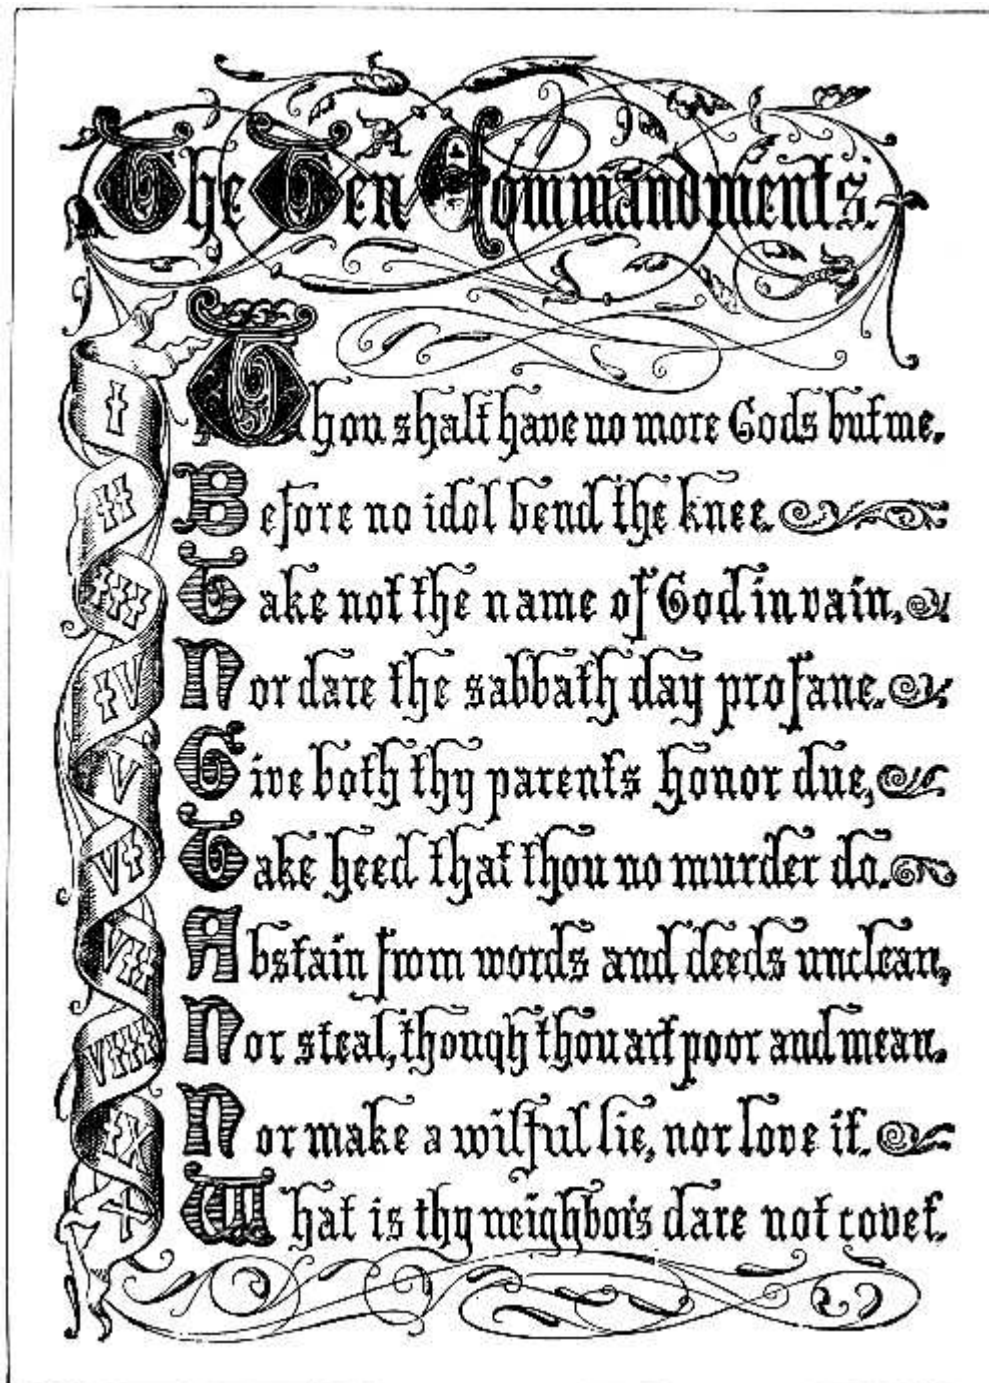 The Ten Commandments.
I
Thou shalt have no more Gods but me.
II
Before no idol bend the knee.
III
Take not the name of God in vain,
IV
Nor dare the sabbath day profane.
V
Give both thy parents honor due,
VI
Take heed that thou no murder do.
VII
Abstain from words and deeds unclean,
VIII
Nor steal, though thou art poor and mean.
IX
Nor make a wilful lie, nor love it.
X
What is thy neighbor's dare not covet.